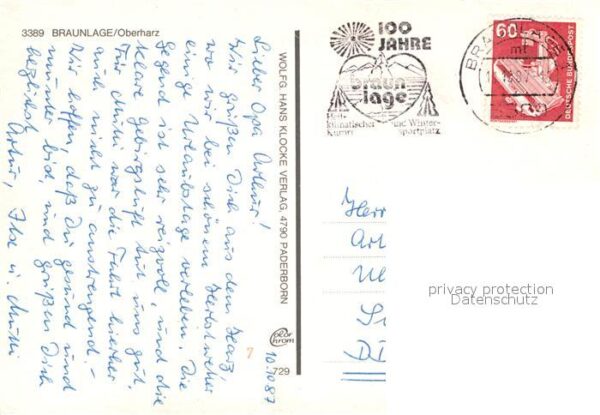 3389 BRAUNLAGE/Oberharz
Lieber Opa Arthur!
Wir grüßen Dich aus dem Harz,
wo wir bei schönem Herbstwetter
einige Urlaubstage verleben. Die
Gegend ist sehr reizvoll, und die
klare Gebirgsluft tut uns gut.
Für Mutti war die Fahrt hierher
auch nicht zu anstrengend. -
Wir hoffen, daß Du gesund und
munter bist, und grüßen Dich
herzlichst
Artur, Ilse u. Mutti
10.10.87
WOLFG. HANS KLOCKE VERLAG, 4790 PADERBORN
color
chrom
729
7
100
JAHRE
braun
lage
Heil-
klimatischer und Winter-
Kurort sportplatz
BRAUNLAGE
60
DEUTSCHE BUNDESPOST
Herr
Art
D
privacy protection
Datenschutz